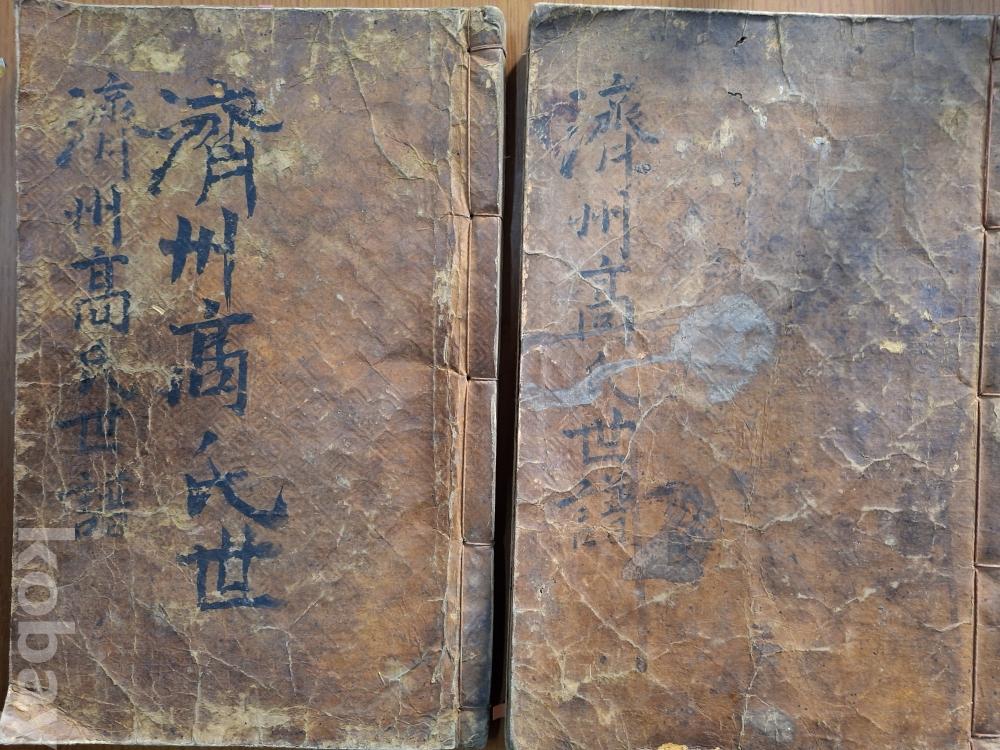 濟州高氏世
濟州高氏世譜
濟州高氏世譜
kobay